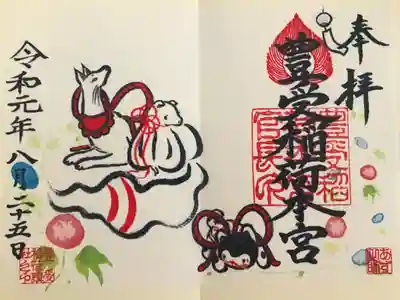 奉拝
豊受稲荷本宮
令和元年八月二十五日